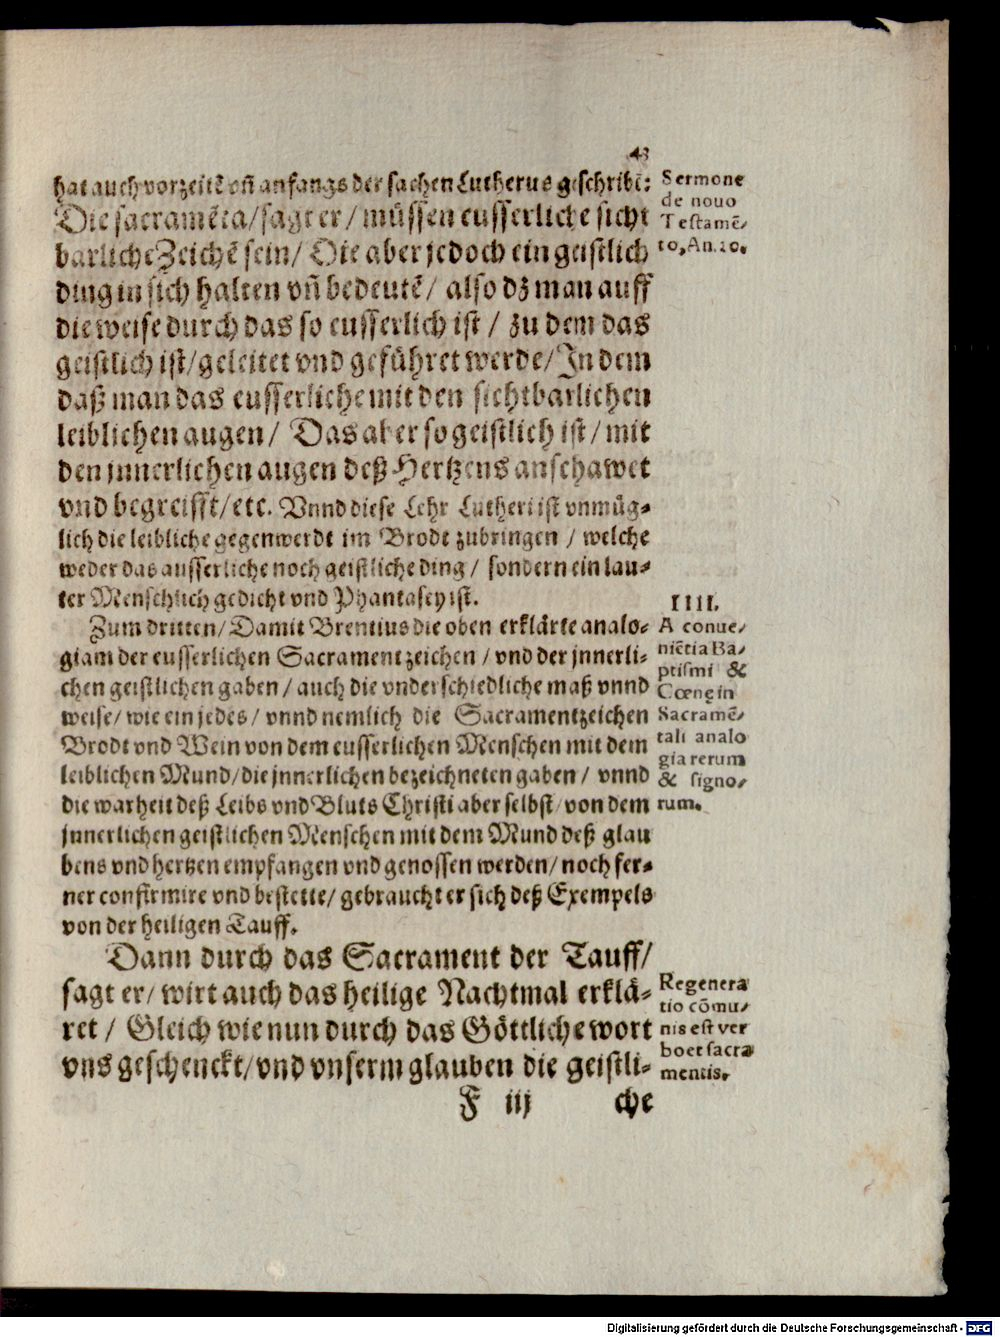 43
hat auch vorzeitē vñ anfangs der sachen Lutherus geschribē:
Die sacramēta/ sagt er/ müssen eusserliche sicht
barliche Zeichē sein/ Die aber jedoch ein geistlich
ding in sich halten vñ bedeutē/ also dz man auff
die weise durch das so eusserlich ist / zu dem das
geistlich ist/ geleitet vnd geführet werde/ In dem
daß man das eusserliche mit den sichtbarlichen
leiblichen augen/ Das aber so geistlich ist/ mit
den jnnerlichen augen deß Hertzens anschawet
vnd begreifft/ etc. Vnnd diese Lehr Lutheri ist vnmüg-
lich die leibliche gegenwerdt im Brodt zubringen / welche
weder das ausserliche noch geistliche ding / sondern ein lau-
ter Menschlich gedicht vnd Phantasey ist.
Zum dritten/ Damit Brentius die oben erklärte analo-
giam der eusserlichen Sacramentzeichen / vnd der jnnerli-
chen geistlichen gaben / auch die vnderschiedliche maß vnnd
weise/ wie ein jedes / vnnd nemlich die Sacramentzeichen
Brodt vnd Wein von dem eusserlichen Menschen mit dem
leiblichen Mund/ die jnnerlichen bezeichneten gaben / vnnd
die warheit deß Leibs vnd Bluts Christi aber selbst/ von dem
jnnerlichen geistlichen Menschen mit dem Mund deß glau
bens vnd hertzen empfangen vnd genossen werden/ noch fer-
ner confirmire vnd bestette/ gebraucht er sich deß Exempels
von der heiligen Tauff.
Dann durch das Sacrament der Tauff/
sagt er/ wirt auch das heilige Nachtmal erklä-
ret / Gleich wie nun durch das Göttliche wort
vns geschenckt/ vnd vnserm glauben die geistli-
F iij che
Sermone
de nouo
Testamē/
to, An. 20.
IIII.
A conue/
niētia Ba/
ptismi &
Cœnę in
Sacramē/
tali analo
gia rerum
& signo/
rum.
Regenera
tio cōmu/
nis est ver
bo et sacra
mentis.
Digitalisierung gefördert durch die Deutsche Forschungsgemeinschaft - DFG